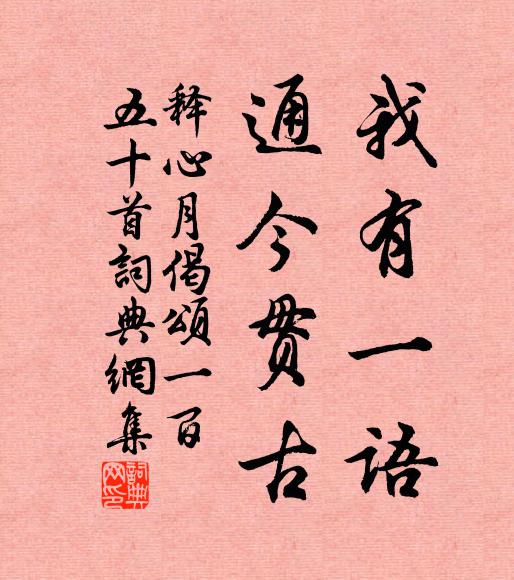 我有一语
通今贯古
释心月偈颂一百
五十首词典网集
词典网印